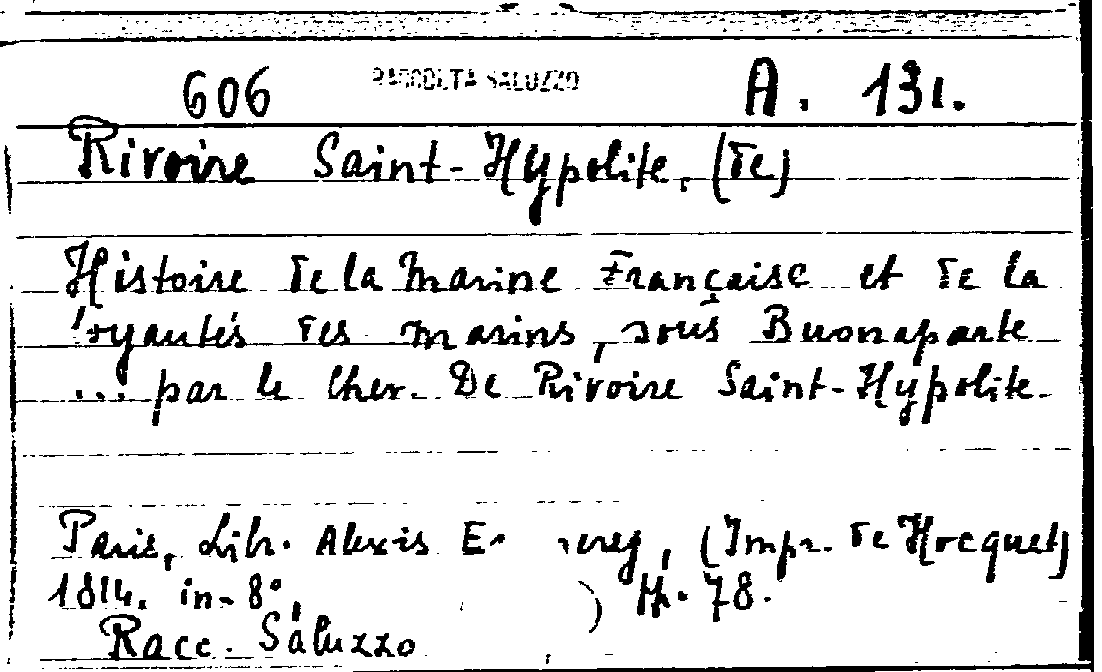 606 RACCOLTA SALUZZO A. 131.
Rivoire Saint-Hypolite, (De)
Histoire De la Marine Française et De la
loyautés Des marins, sous Buonaparte
... par le Cher. De Rivoire Saint-Hypolite.
Paris, Libr. Alexis (Impr. De Hocquet)
1814. in-8°, ) 78.
Racc. Saluzzo